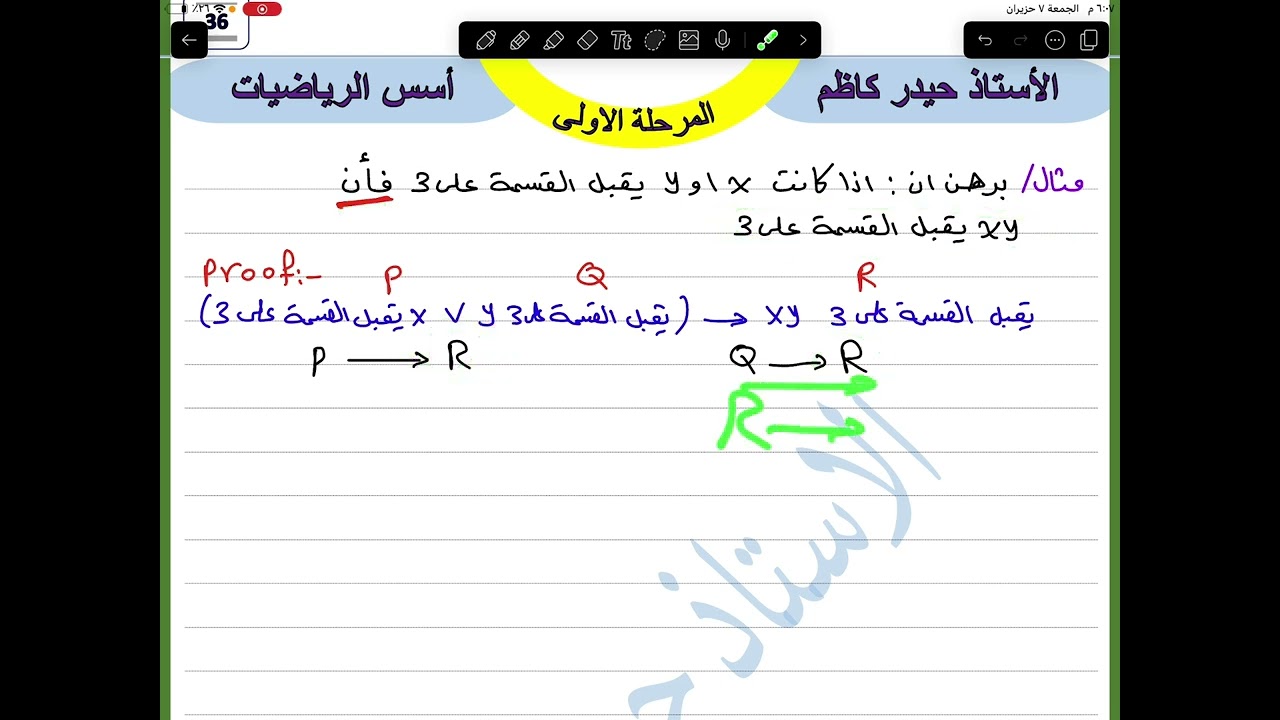 ٦:٠٧ م الجمعة ٧ حزيران
٪٢٦
36
Tt
الأستاذ حيدر كاظم
المرحلة الاولى
أسس الرياضيات
مثال/ برهن ان : اذا كانت x او y يقبل القسمة على 3 فأن
xy يقبل القسمة على 3
Proof:- P Q R
(يقبل القسمة على 3 x ∨ y يقبل القسمة على 3) → xy يقبل القسمة على 3
P → R Q → R
R →
الاستاذ ح